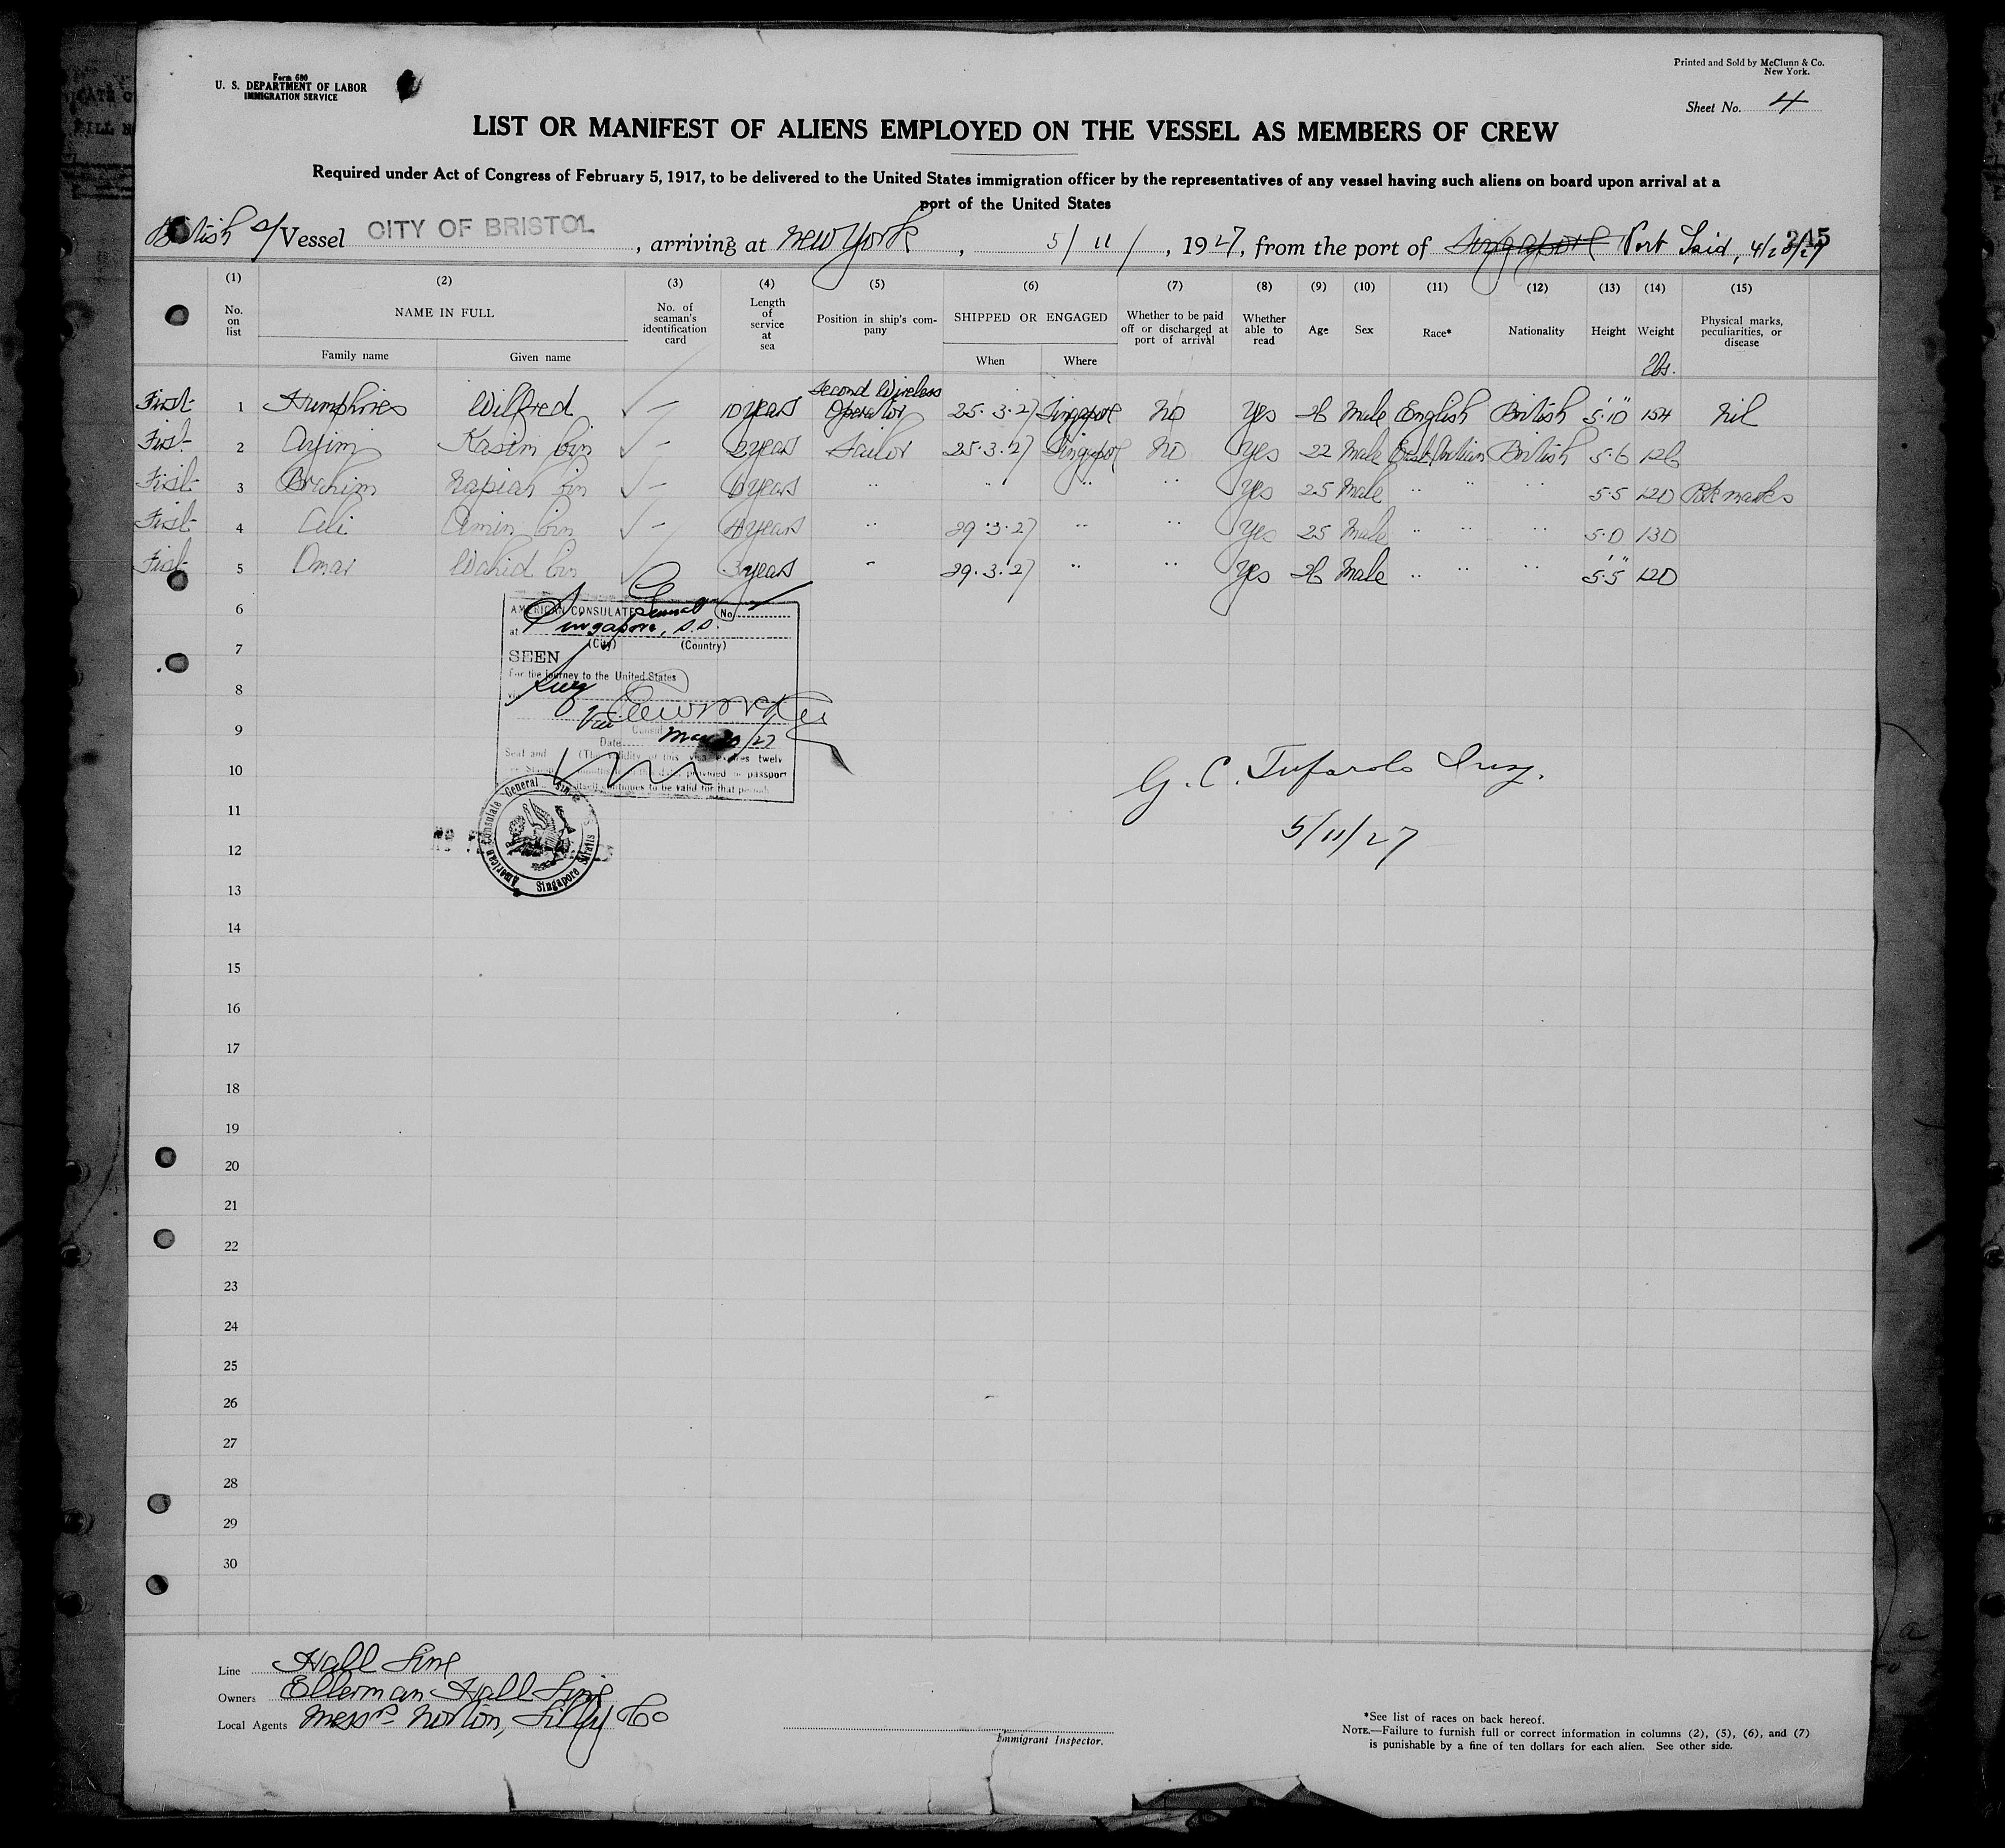 Form 680
U. S. DEPARTMENT OF LABOR
IMMIGRATION SERVICE
Printed and Sold by McClunn & Co.
New York.
Sheet No. 4
LIST OR MANIFEST OF ALIENS EMPLOYED ON THE VESSEL AS MEMBERS OF CREW
Required under Act of Congress of February 5, 1917, to be delivered to the United States immigration officer by the representatives of any vessel having such aliens on board upon arrival at a
port of the United States
British s/Vessel CITY OF BRISTOL, arriving at New York, 5/11/, 1927, from the port of Singapore Port Said, 4/20/27
(1) (2) (3) (4) (5) (6) (7) (8) (9) (10) (11) (12) (13) (14) (15)
No. on list NAME IN FULL No. of seaman's identification card Length of service at sea Position in ship's company SHIPPED OR ENGAGED Whether to be paid off or discharged at port of arrival Whether able to read Age Sex Race* Nationality Height Weight Physical marks, peculiarities, or disease
Family name Given name When Where lbs.
First 1 Humphries Wilfred ✓ – 10 years Second Wireless Operator 25.3.27 Singapore No Yes 26 Male English British 5'10" 154 Nil
First 2 Kasim bin ✓ – 2 years Sailor 25.3.27 Singapore No Yes 22 Male East Indian British 5.6 126
First 3 Brahim Napiah bin ✓ – 6 years " " " " Yes 25 Male " " " 5.5 120 Pock marks
First 4 Ali Amin bin ✓ – 4 years " 29.3.27 " " Yes 25 Male " " " 5.0 130
First 5 Omar Wahid bin ✓ 3 years " 29.3.27 " " Yes 26 Male " " " 5'5" 120
6
7
8
9
10
11
12
13
14
15
16
17
18
19
20
21
22
23
24
25
26
27
28
29
30
AMERICAN CONSULATE General No.
at Singapore, S.S.
(City) (Country)
SEEN
For the journey to the United States
via Suez
Vice Consul
Date Mar 30/27
Seal and (The validity of this visa expires twelve
months from this date, provided the passport
itself continues to be valid for that period.)
American Consulate General Singapore Straits
G. C. Tufarolo Insp.
5/11/27
Line Hall Line
Owners Ellerman Hall Line
Local Agents Messrs Norton, Lilly & Co
Immigrant Inspector.
*See list of races on back hereof.
NOTE.—Failure to furnish full or correct information in columns (2), (5), (6), and (7)
is punishable by a fine of ten dollars for each alien. See other side.